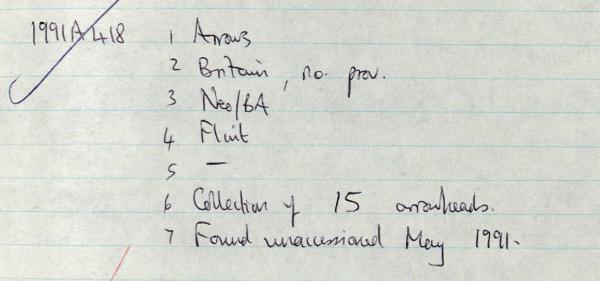 1991A418 1 Arrows
2 Britain, no. prov.
3 Neo/BA
4 Flint
5 —
6 Collection of 15 arrowheads.
7 Found unaccessioned May 1991.